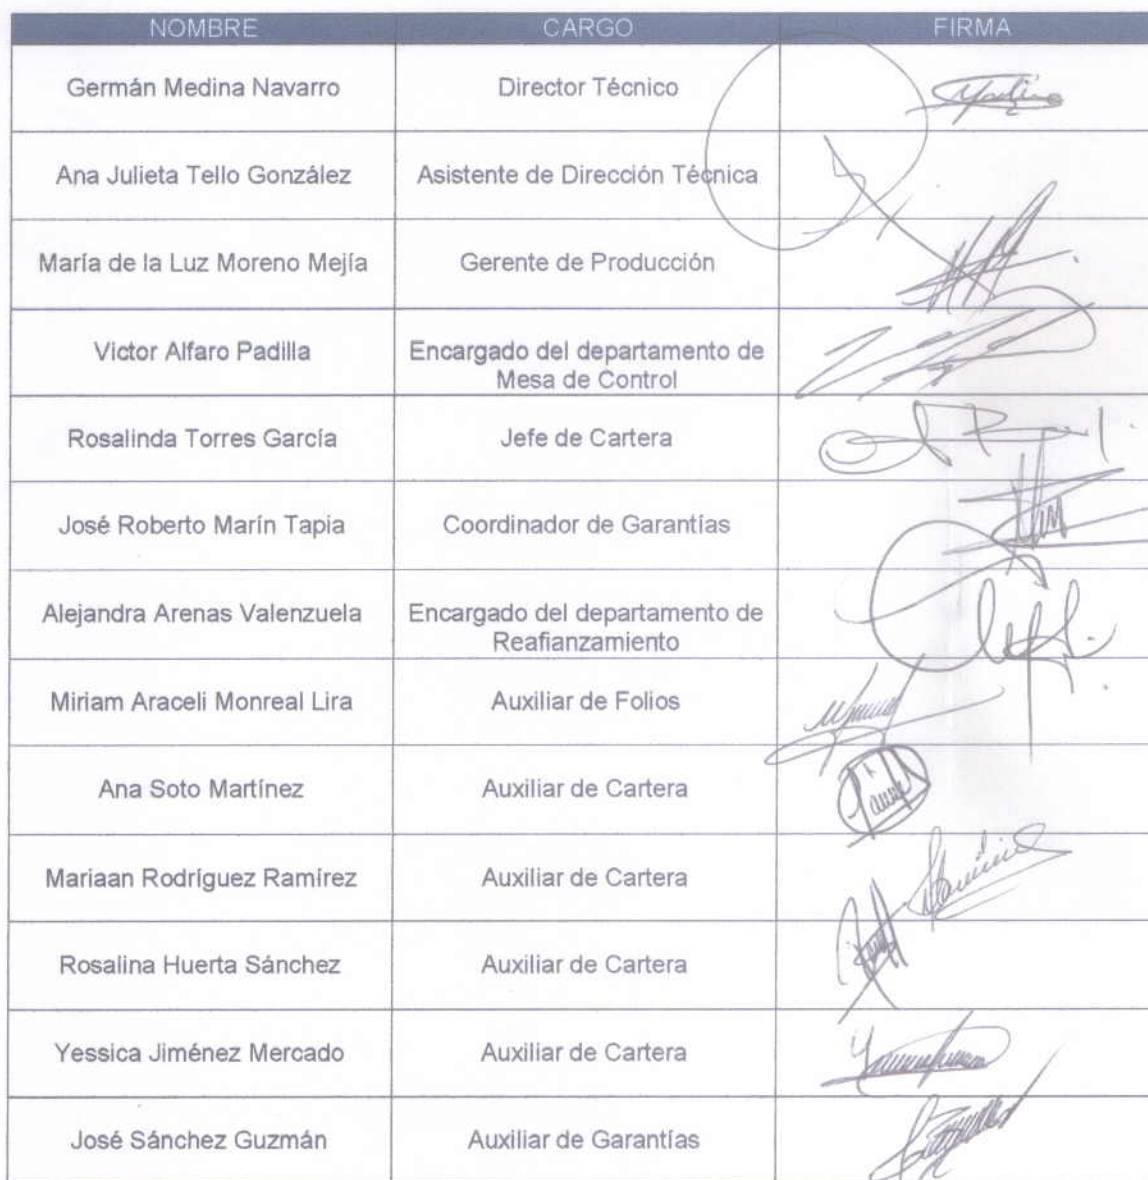 NOMBRE CARGO FIRMA
Germán Medina Navarro Director Técnico
Ana Julieta Tello González Asistente de Dirección Técnica
María de la Luz Moreno Mejía Gerente de Producción
Victor Alfaro Padilla Encargado del departamento de
Mesa de Control
Rosalinda Torres García Jefe de Cartera
José Roberto Marín Tapia Coordinador de Garantías
Alejandra Arenas Valenzuela Encargado del departamento de
Reafianzamiento
Miriam Araceli Monreal Lira Auxiliar de Folios
Ana Soto Martínez Auxiliar de Cartera
Mariaan Rodríguez Ramírez Auxiliar de Cartera
Rosalina Huerta Sánchez Auxiliar de Cartera
Yessica Jiménez Mercado Auxiliar de Cartera
José Sánchez Guzmán Auxiliar de Garantías